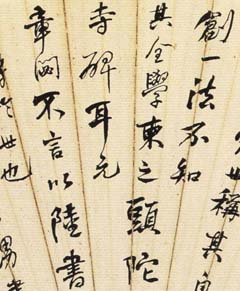 世稱其
創一法不知
其全學東之頭陀
寺碑耳元
章闕不言以陸書
世也